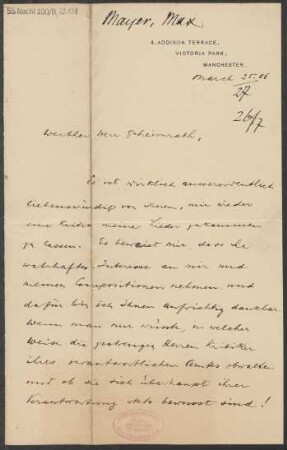 55 Nachl 100/B,
Mayer, Max
4, ADDISON TERRACE,
VICTORIA PARK,
MANCHESTER.
March 25. 06
27
26/7
Werther Herr Geheimrath,
Es ist wirklich ausserordentlich
liebenswürdig von Ihnen, mir wieder
eine Kritik meiner Lieder zukommen
zu lassen. Es beweist mir, dass Sie
wahrhaftes Interesse an mir und
meinen Compositionen nehmen und
dafür bin ich Ihnen aufrichtig dankbar.
Wenn man nur wüsste, in welcher
Weise die gestrengen Herren Kritiker
ihres verantwortlichen Amtes obwalten
und ob sie sich überhaupt ihrer
Verantwortung stets bewusst sind!